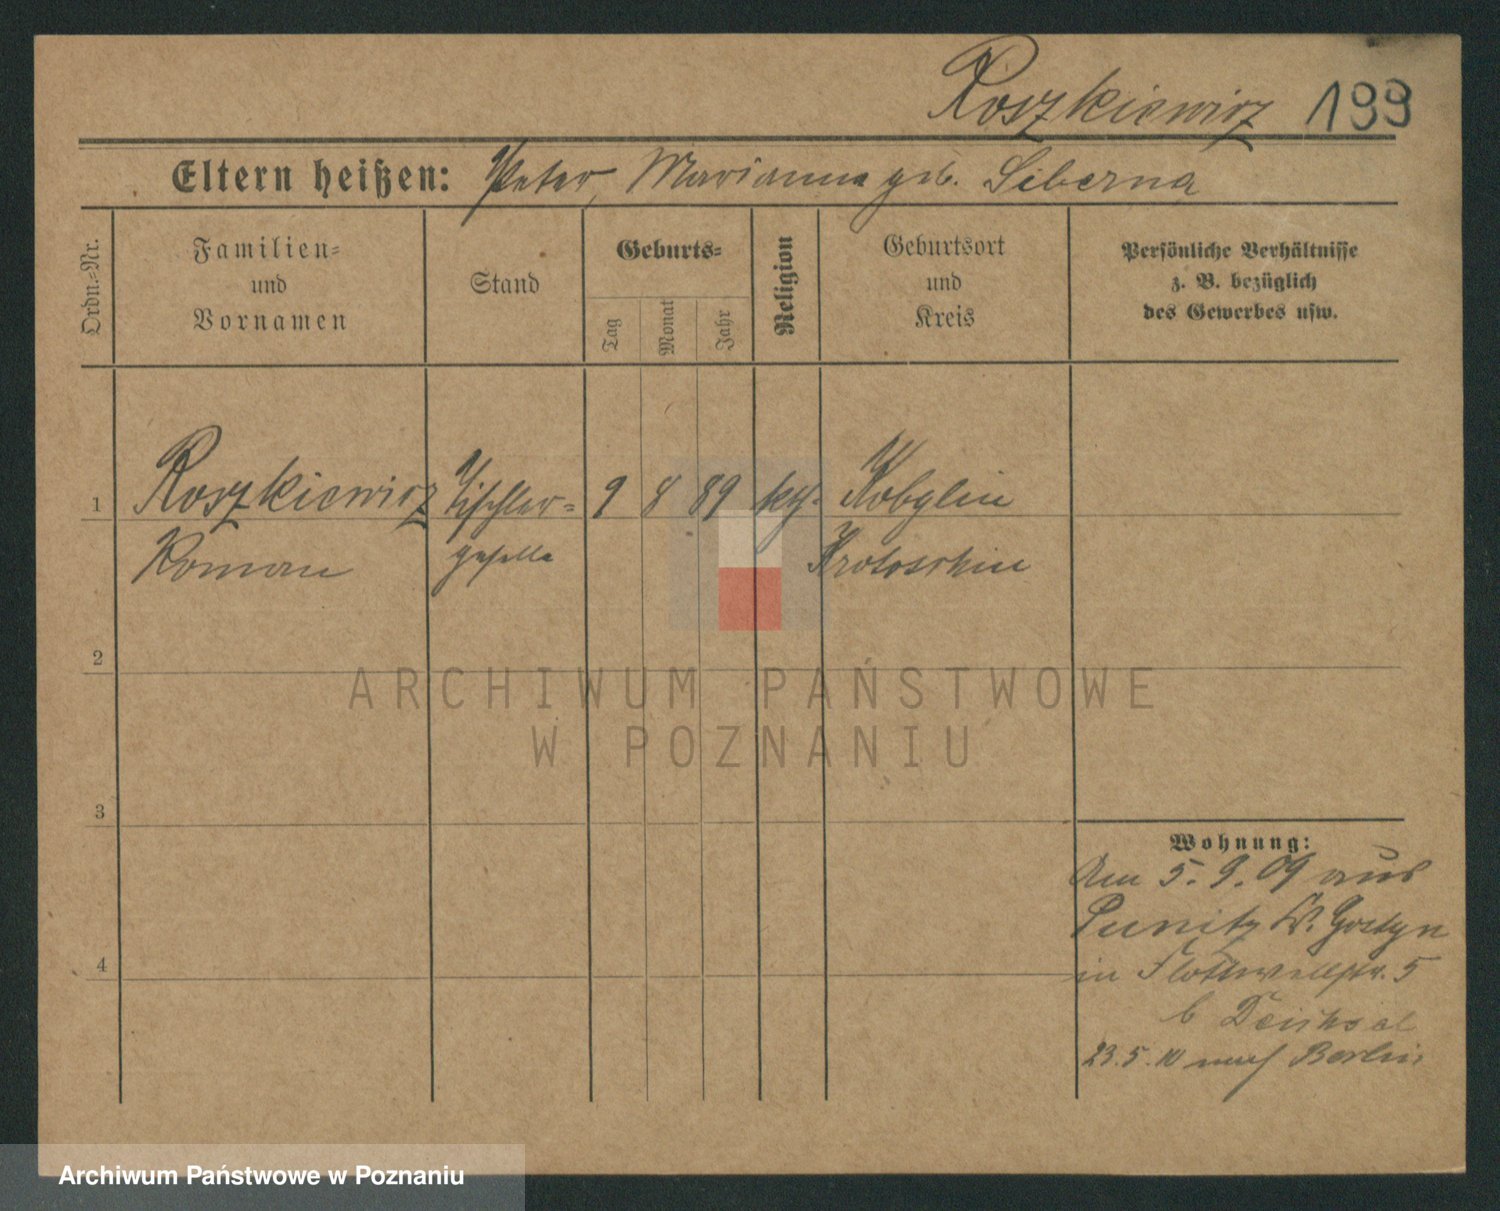 Roszkiewicz 199
Eltern heißen: Peter, Marianna geb. Siberna
Ordn.=Nr.
Familien=
und
Vornamen
Stand
Geburts=
Tag
Monat
Jahr
Religion
Geburtsort
und
Kreis
Persönliche Verhältnisse
z. B. bezüglich
des Gewerbes usw.
1 Roszkiewicz Tischler= 9 8 89 kth. Kobylin
Roman geselle Krotoschin
2
ARCHIWUM PAŃSTWOWE
W POZNANIU
3
Wohnung:
Am 5. 9. 09 aus
Punitz Kr. Gostyn
4
in Flottwellstr. 5
b
23.5.10 nach Berlin
Archiwum Państwowe w Poznaniu